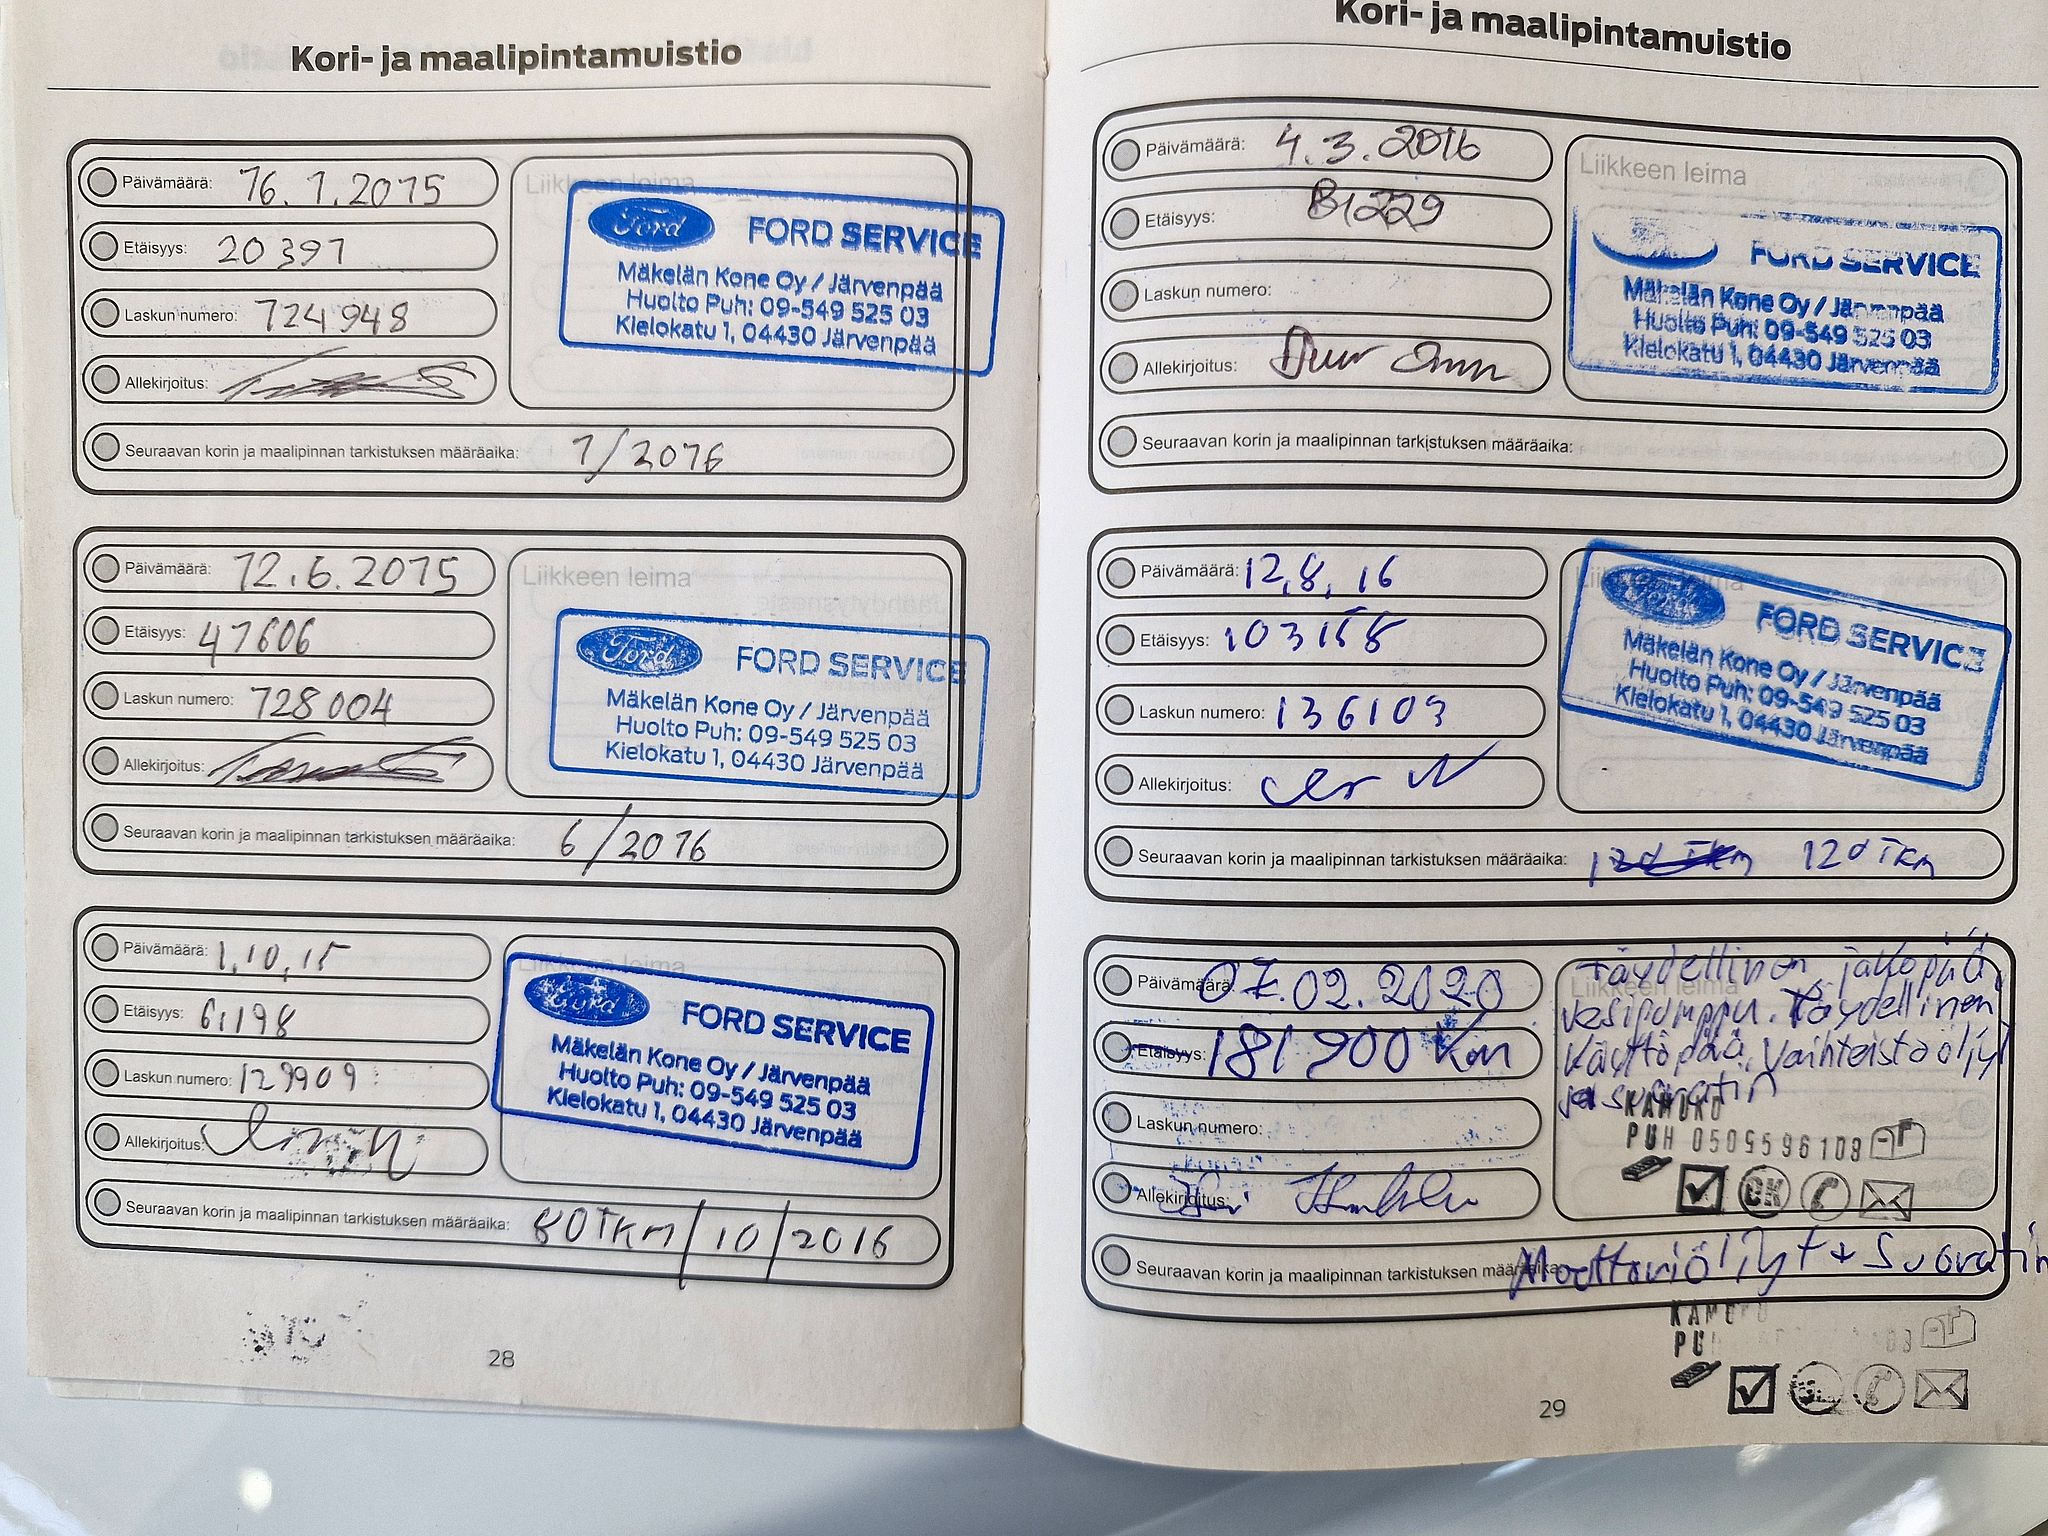 Kori- ja maalipintamuistio
Päivämäärä: 16.1.2015
Etäisyys: 20391
Laskun numero: 724948
Allekirjoitus:
Liikkeen leima
Ford FORD SERVICE
Mäkelän Kone Oy / Järvenpää
Huolto Puh: 09-549 525 03
Kielokatu 1, 04430 Järvenpää
Seuraavan korin ja maalipinnan tarkistuksen määräaika: 1/2016
Päivämäärä: 12.6.2015
Etäisyys: 47606
Laskun numero: 728004
Allekirjoitus:
Liikkeen leima
Ford FORD SERVICE
Mäkelän Kone Oy / Järvenpää
Huolto Puh: 09-549 525 03
Kielokatu 1, 04430 Järvenpää
Seuraavan korin ja maalipinnan tarkistuksen määräaika: 6/2016
Päivämäärä: 1,10,15
Etäisyys: 61198
Laskun numero: 129909
Allekirjoitus:
Liikkeen leima
Ford FORD SERVICE
Mäkelän Kone Oy / Järvenpää
Huolto Puh: 09-549 525 03
Kielokatu 1, 04430 Järvenpää
Seuraavan korin ja maalipinnan tarkistuksen määräaika: 80Tkm/10/2016
28
Kori- ja maalipintamuistio
Päivämäärä: 4.3.2016
Etäisyys: 81229
Laskun numero:
Allekirjoitus:
Liikkeen leima
FORD SERVICE
Mäkelän Kone Oy / Järvenpää
Huolto Puh: 09-549 525 03
Kielokatu 1, 04430 Järvenpää
Seuraavan korin ja maalipinnan tarkistuksen määräaika:
Päivämäärä: 12,8,16
Etäisyys: 103155
Laskun numero: 136103
Allekirjoitus:
Liikkeen leima
Ford FORD SERVICE
Mäkelän Kone Oy / Järvenpää
Huolto Puh: 09-549 525 03
Kielokatu 1, 04430 Järvenpää
Seuraavan korin ja maalipinnan tarkistuksen määräaika: 120 Tkm 120 Tkm
Päivämäärä: 07.02.2020
Etäisyys: 181900 Km
Laskun numero:
Allekirjoitus:
Liikkeen leima
Täydellinen jakopää,
vesipumppu. Täydellinen
käyttöpää. Vaihteistoöljyt
ja suoratin
KAMUKO
PUH 0505596108
OK
Seuraavan korin ja maalipinnan tarkistuksen määräaika: Moottoriöljyt + Suoratin
29